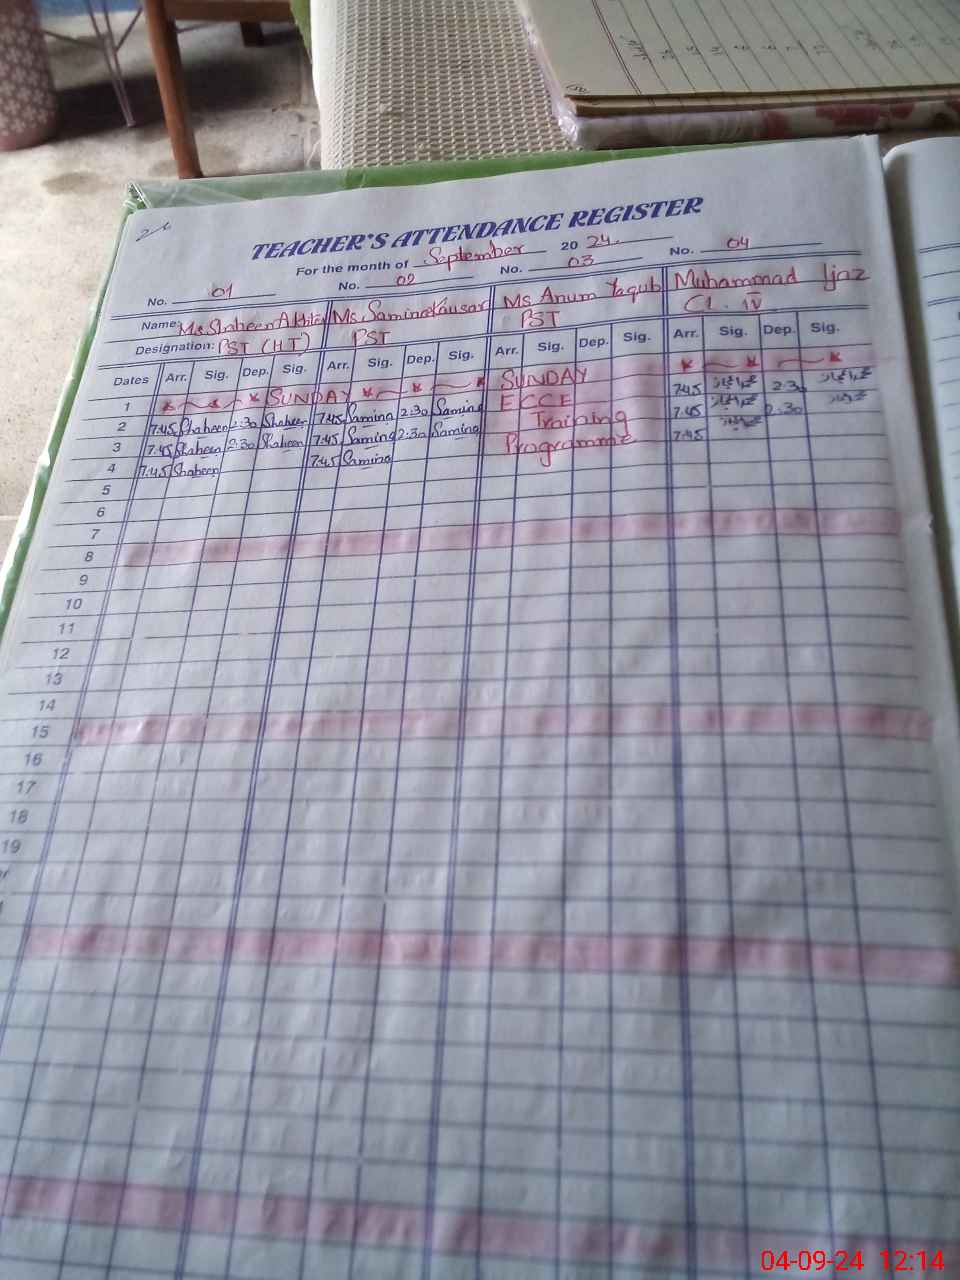 TEACHER'S ATTENDANCE REGISTER
For the month of September 20 24.
No. 01 No. 02 No. 03 No. 04
Name: Ms. Shaheen Akhtar Ms. Samina Kausar Ms Anum Yaqub Muhammad Ijaz
Designation: PST (HT) PST PST Cl. IV
Dates Arr. Sig. Dep. Sig. Arr. Sig. Dep. Sig. Arr. Sig. Dep. Sig. Arr. Sig. Dep. Sig.
1 SUNDAY SUNDAY
2 7:45 Shaheen 2:30 Shaheen 7:45 Samina 2:30 Samina ECCE 7:45 2:30
3 7:45 Shaheen 2:30 Shaheen 7:45 Samina 2:30 Samina Training 7:45 2:30
4 7:45 Shaheen 7:45 Samina Programme 7:45
5
6
7
8
9
10
11
12
13
14
15
16
17
18
19
04-09-24 12:14